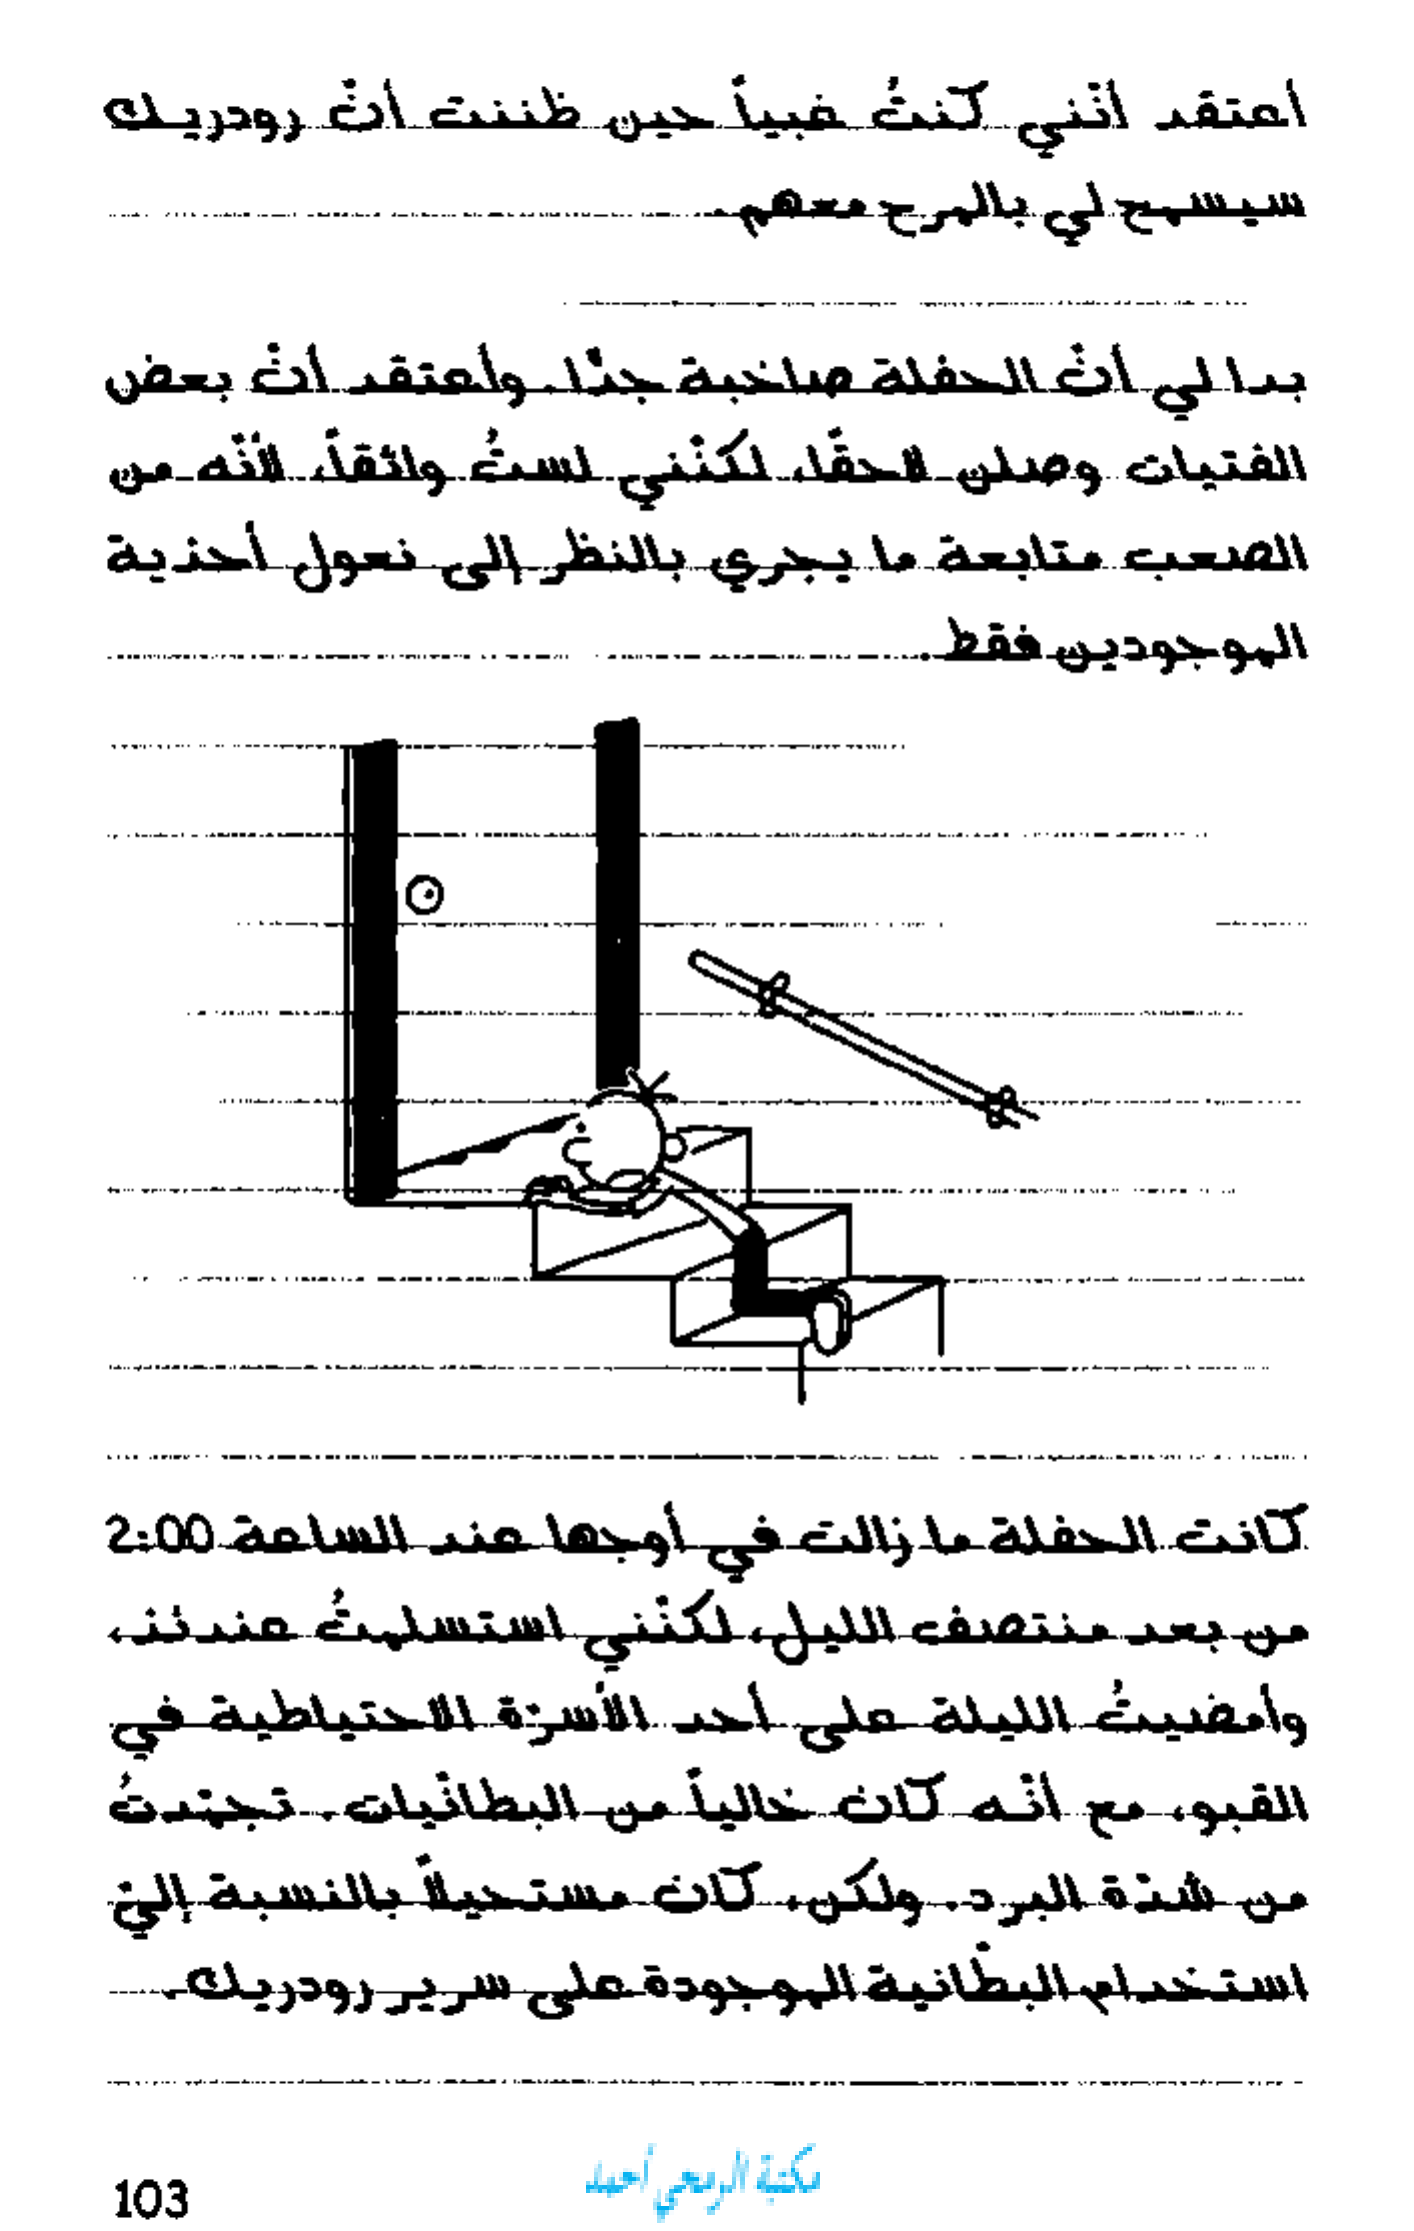 أعتقد أنّني كنتُ غبياً حين ظننت أنّ رودريك
سيسمح لي بالمرح معهم.
بدا لي أنّ الحفلة صاخبة جدًّا. وأعتقد أنّ بعض
الفتيات وصلن لاحقًا، لكنّني لستُ واثقاً، لأنّه من
الصعب متابعة ما يجري بالنظر إلى نعول أحذية
الموجودين فقط.
كانت الحفلة ما زالت في أوجها عند الساعة 2:00
من بعد منتصف الليل، لكنّني استسلمتُ عندئذ،
وأمضيتُ الليلة على أحد الأسرّة الاحتياطية في
القبو، مع أنّه كان خالياً من البطانّيات. تجمّدتُ
من شدّة البرد. ولكن، كان مستحيلاً بالنسبة إليّ
استخدام البطّانية الموجودة على سرير رودريك.
مكتبة الرمحي أحمد
103